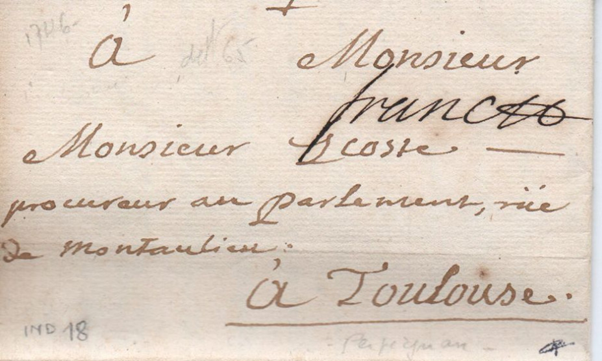 1746-
à Monsieur
franc
Monsieur Scosse
procureur au parlement, rüe
de montaulieu.
à Toulouse.
IND 18
Perpignan